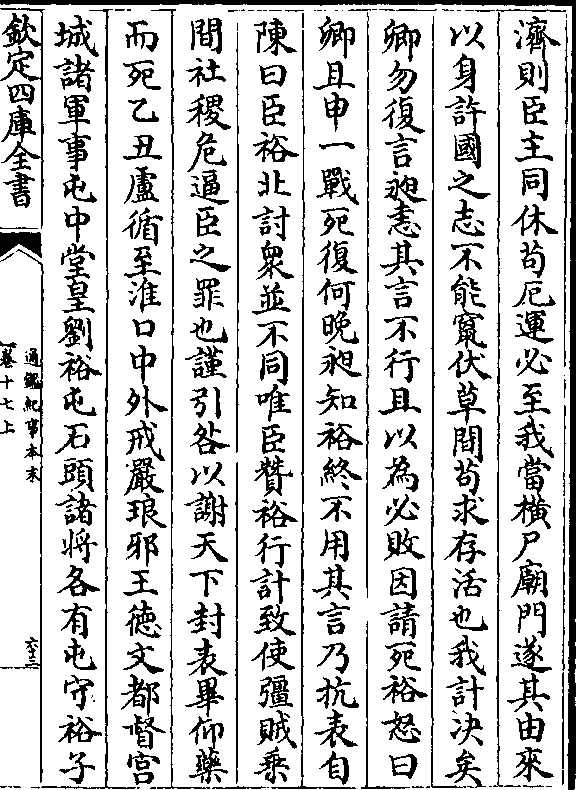 濟則臣主同休茍厄運必至我當橫尸廟門遂其由來
以身許國之志不能竄伏草間茍求存活也我計決矣
卿勿復言昶恚其言不行且以為必敗因請死裕怒曰
卿且申一戰死復何晚昶知裕終不用其言乃抗表自
陳曰臣裕北討衆並不同唯臣贊裕行計致使彊賊乗
間社稷危逼臣之罪也謹引咎以謝天下封表畢仰藥
而死乙丑盧循至淮口中外戒嚴琅邪王徳文都督宫
城諸軍事屯中堂皇劉裕屯石頭諸將各有屯守裕子
欽定四庫全書
通鑑紀事本末
卷十七上
六三